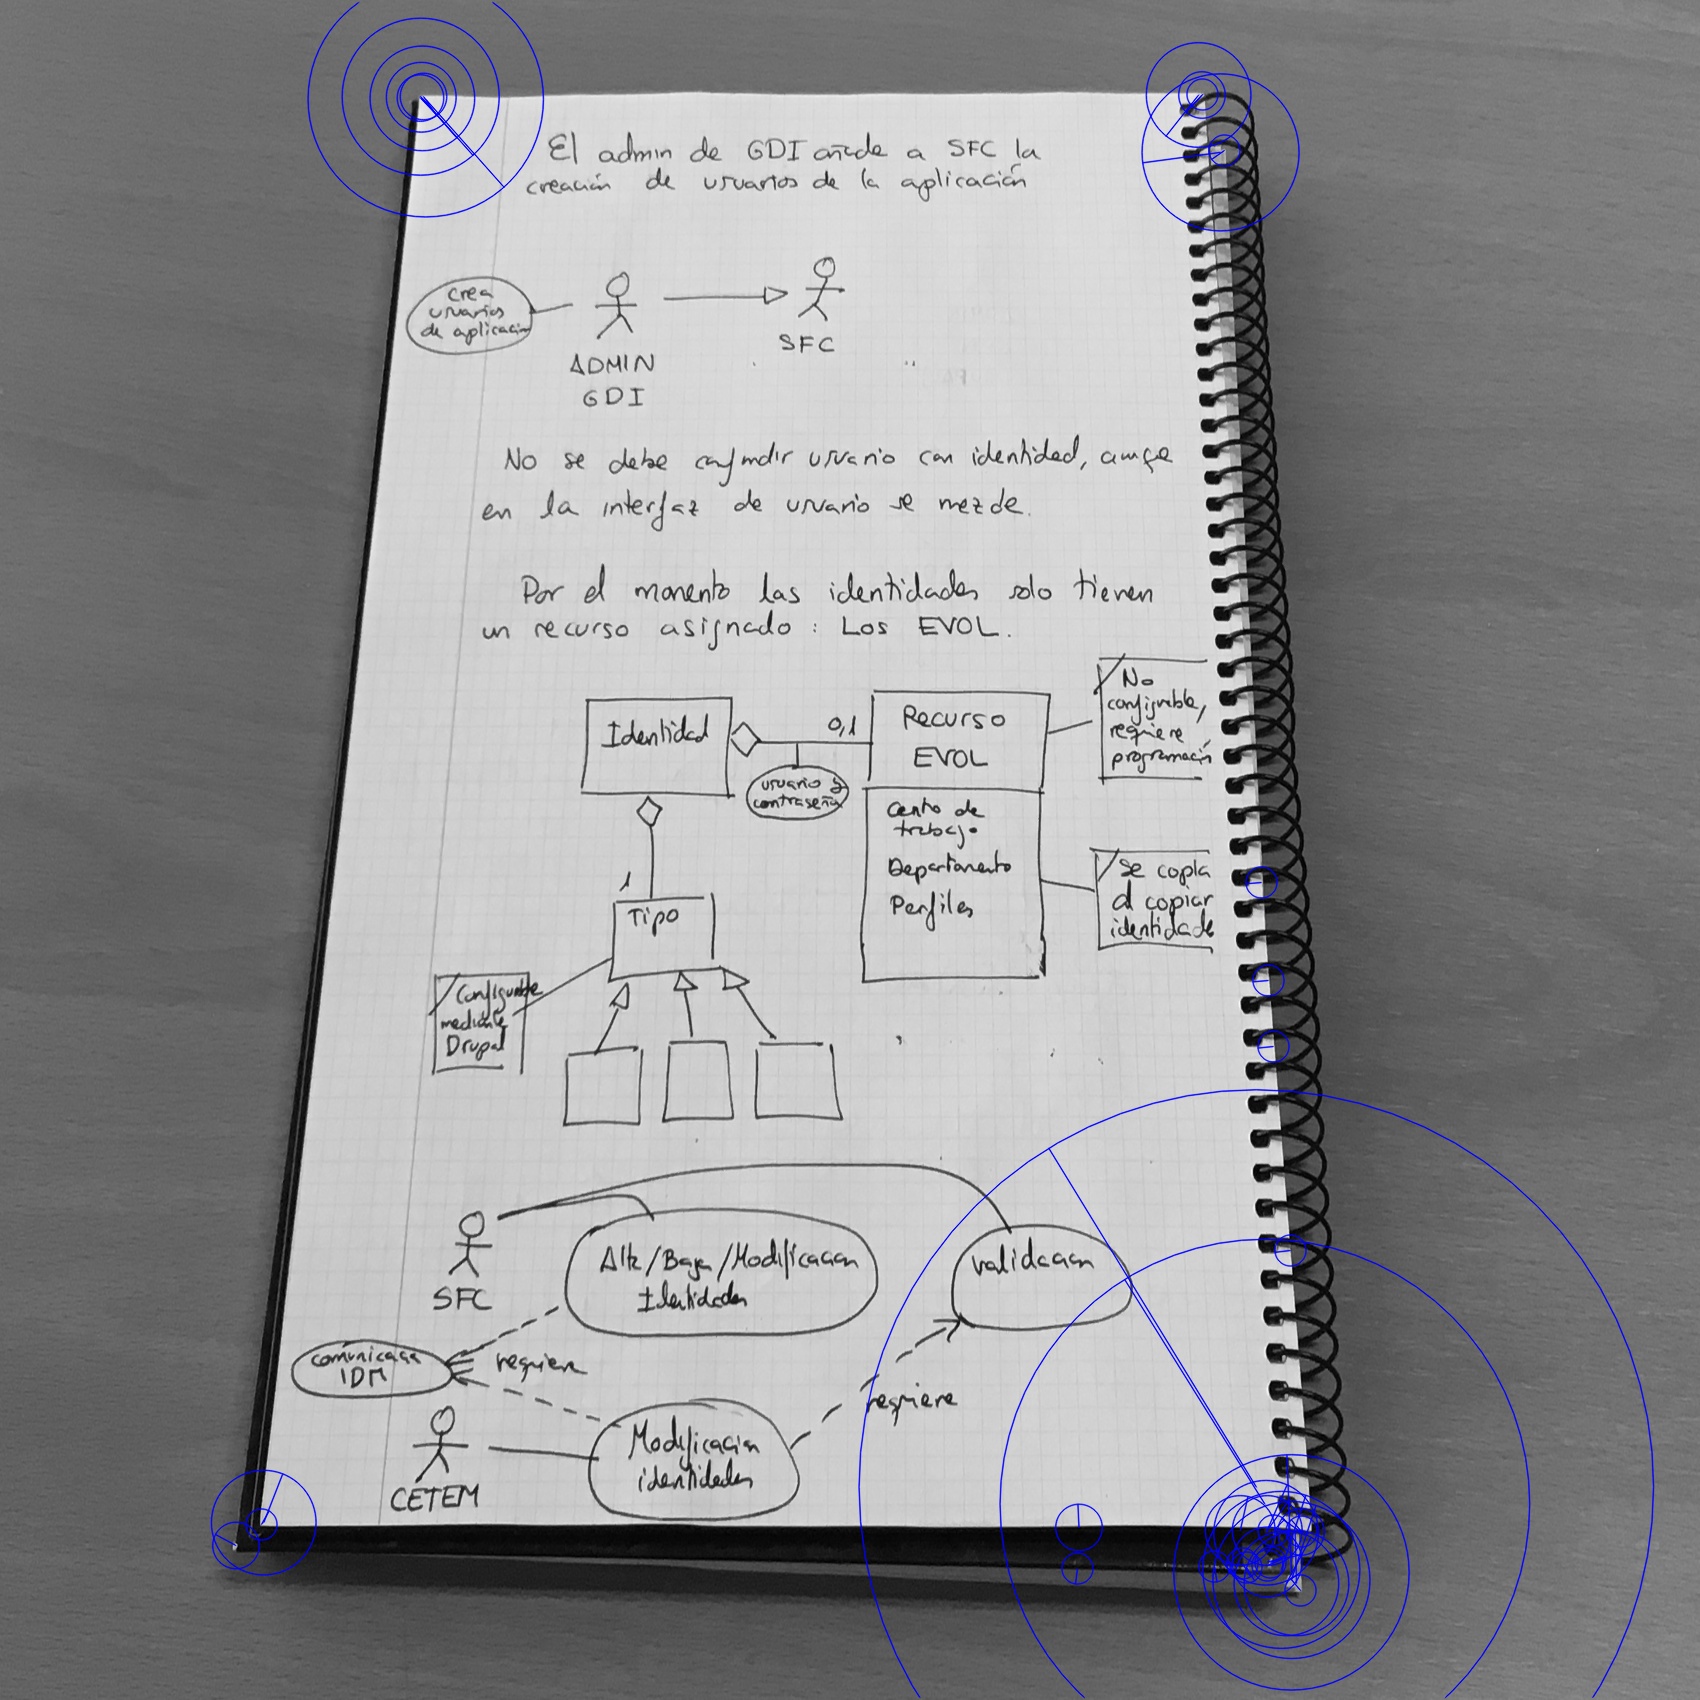 El admin de GDI añade a SFC la
creación de usuarios de la aplicación
crea
usuarios
de aplicación
ADMIN
GDI
SFC
No se debe confundir usuario con identidad, aunque
en la interfaz de usuario se mezcle.
Por el momento las identidades solo tienen
un recurso asignado: Los EVOL.
Identidad
0,1
usuario y
contraseña
Recurso
EVOL
Centro de
trabajo
Departamento
Perfiles
No
configurable,
requiere
programación
Se copia
al copiar
identidade
1
Tipo
Configurable
mediante
Drupal
SFC
Alta/Baja/Modificacion
Identidades
validacion
comunicacion
IDM
requiere
requiere
CETEM
Modificación
identidades